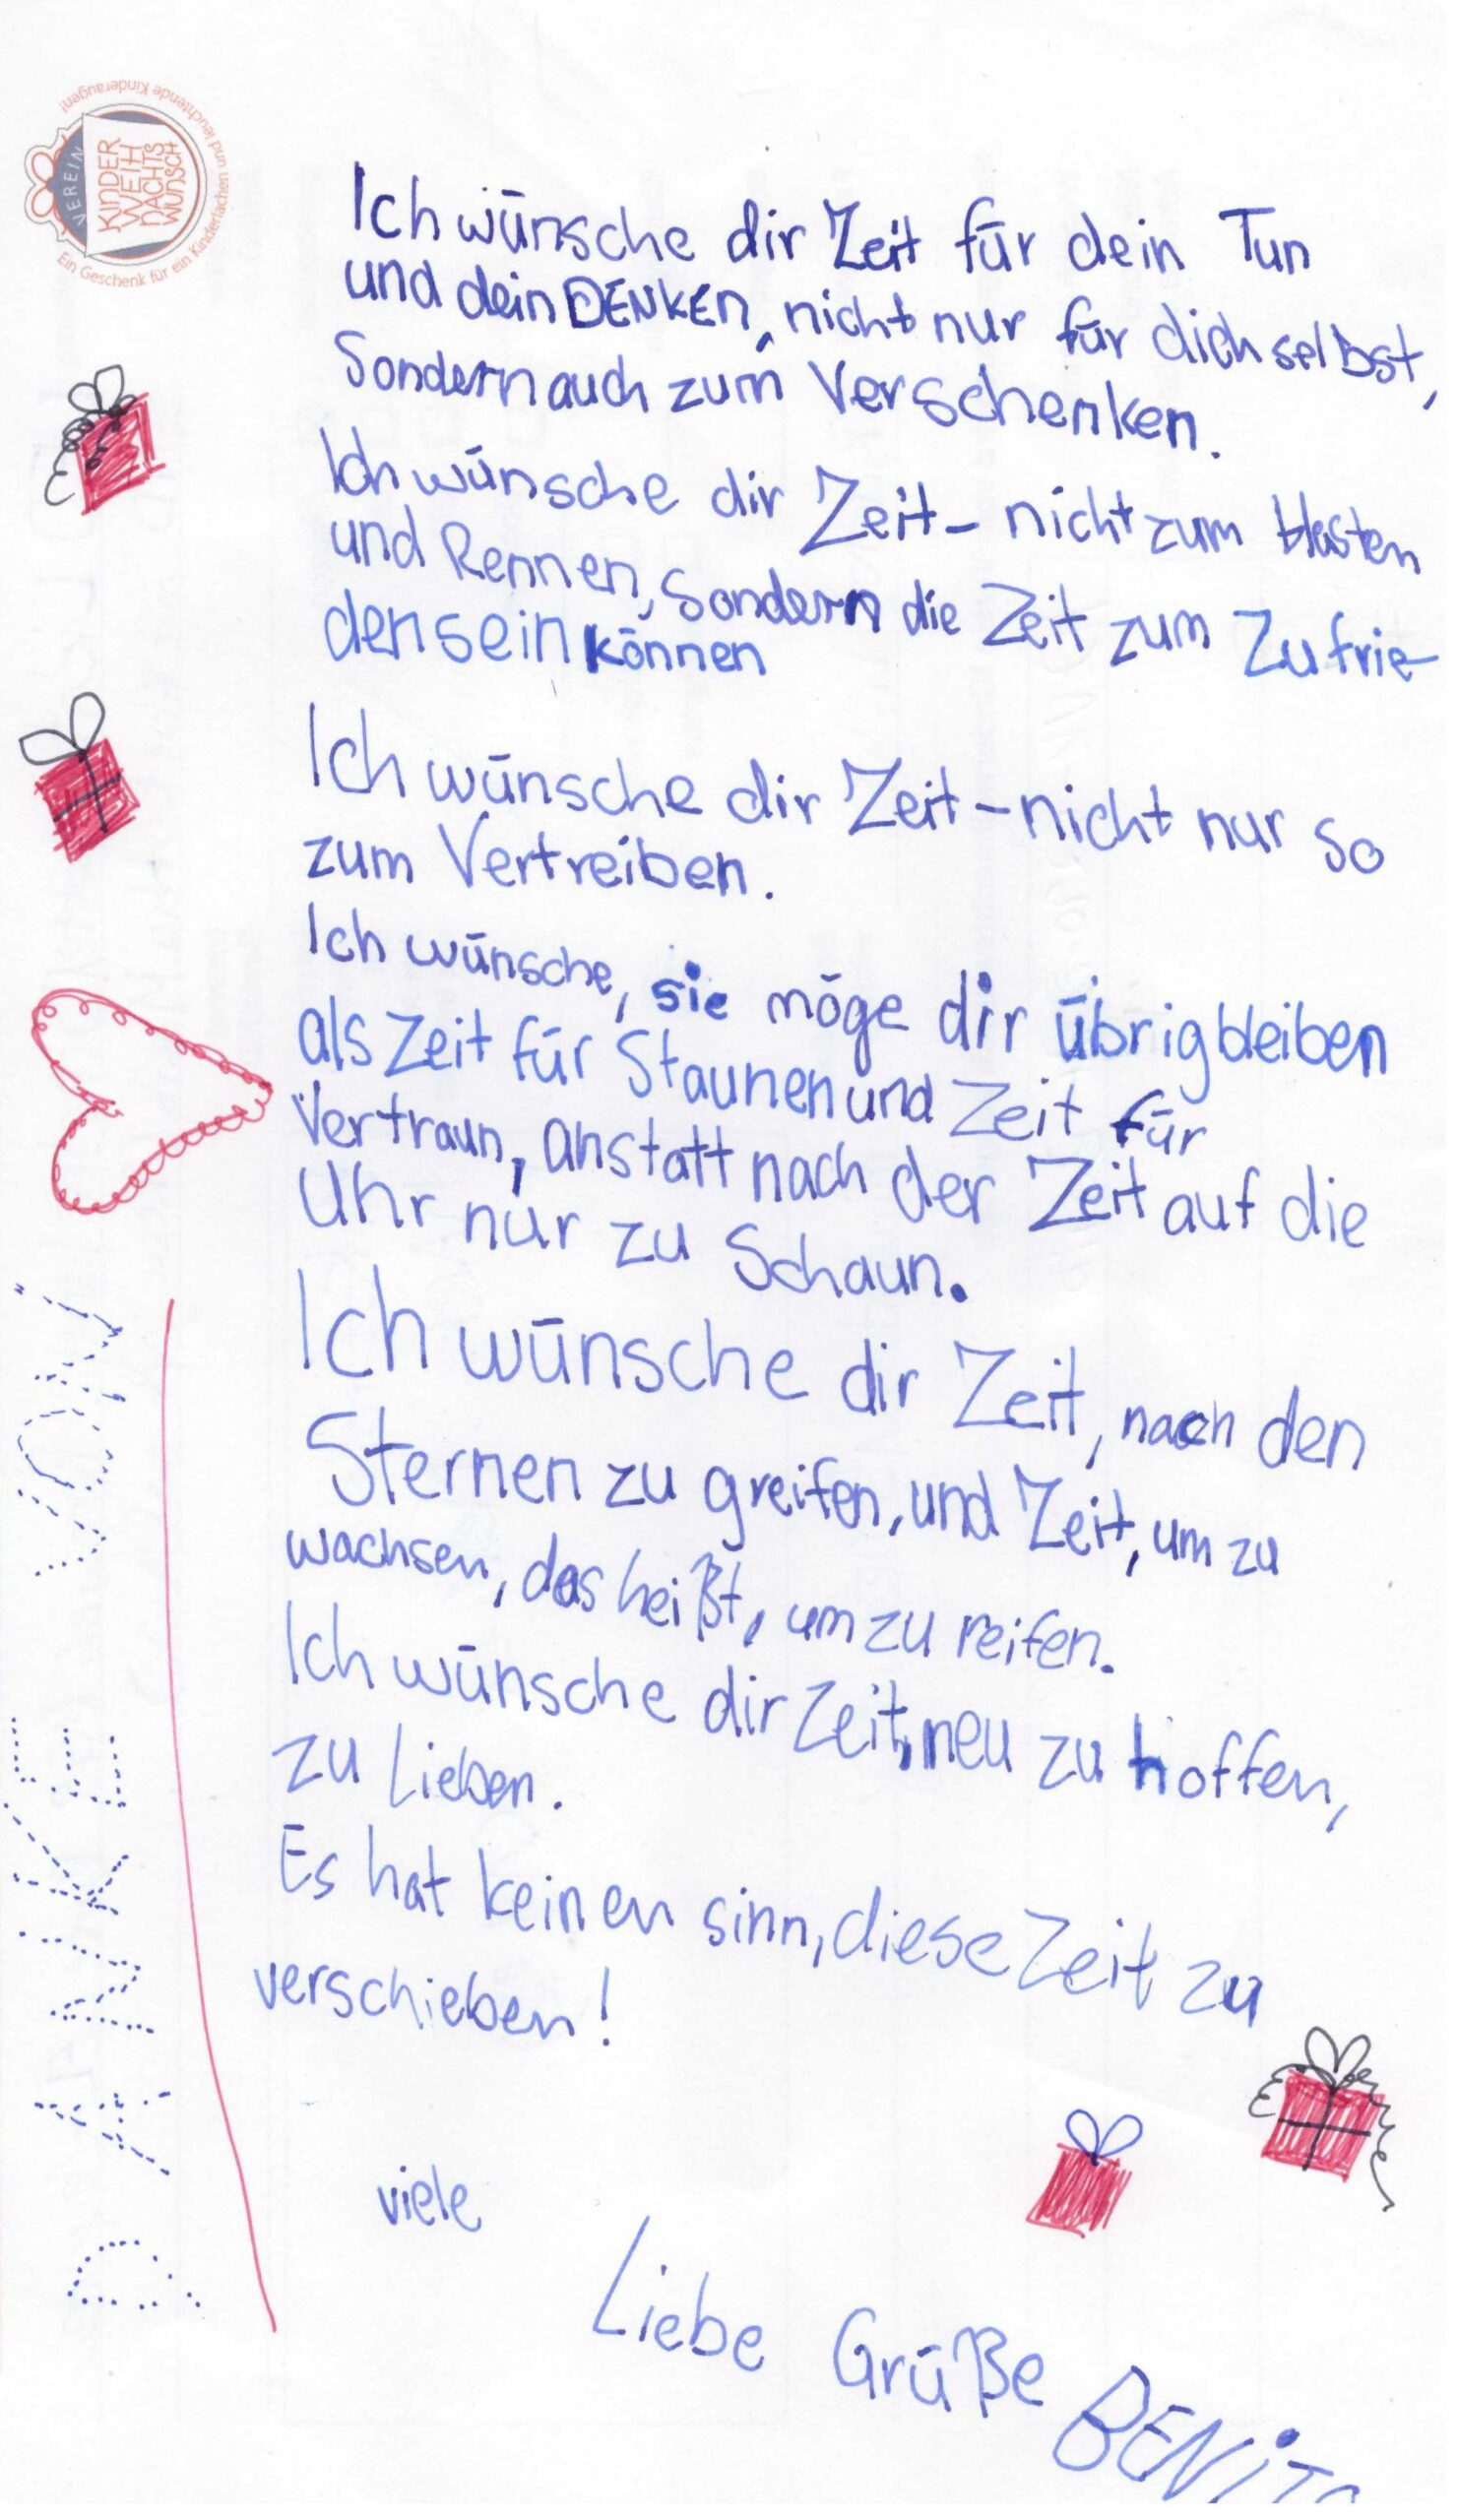 Ein Geschenk für ein Kinderlachen und leuchtende Kinderaugen!
VEREIN
KINDER
WEIH
NACHTS
WUNSCH
Ich wünsche dir Zeit für dein Tun
und dein DENKEN, nicht nur für dich selbst,
Sondern auch zum Verschenken.
Ich wünsche dir Zeit - nicht zum Hasten
und Rennen, Sondern die Zeit zum Zufrie-
densein können
Ich wünsche dir Zeit - nicht nur so
zum Vertreiben.
Ich wünsche, sie möge dir übrig bleiben
als Zeit für Staunen und Zeit für
Vertraun, anstatt nach der Zeit auf die
Uhr nur zu Schaun.
Ich wünsche dir Zeit, nach den
Sternen zu greifen, und Zeit, um zu
wachsen, das heißt, um zu reifen.
Ich wünsche dir Zeit, neu zu hoffen,
zu Lieben.
Es hat keinen sinn, diese Zeit zu
verschieben!
viele
Liebe Grüße
DANKE VON